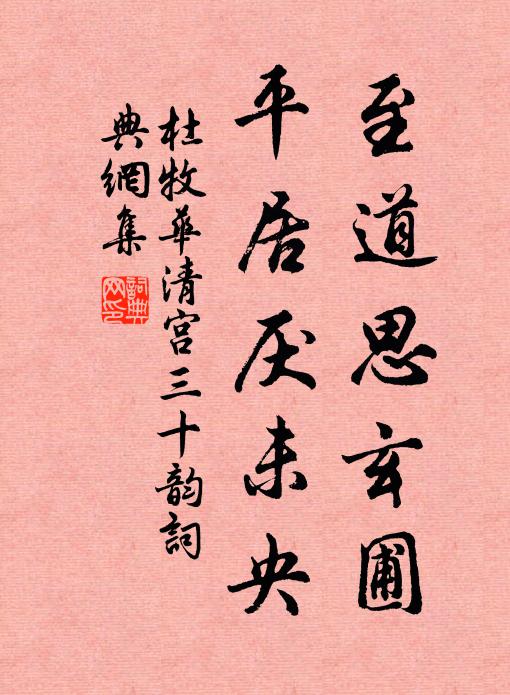 至道思玄圃
平居厌未央
杜牧華清宮三十韵詞
典網集
詞典
网印